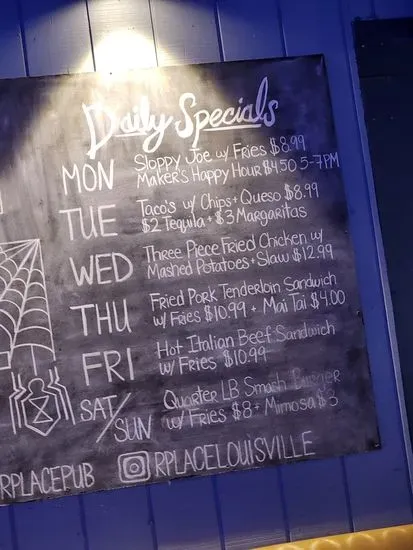 Daily Specials
MON
Sloppy Joe w/ Fries $8.99
Maker's Happy Hour $4.50 5-7PM
TUE
Taco's w/ Chips + Queso $8.99
$2 Tequila + $3 Margaritas
WED
Three Piece Fried Chicken w/
Mashed Potatoes + Slaw $12.99
THU
Fried Pork Tenderloin Sandwich
w/ Fries $10.99 + Mai Tai $4.00
FRI
Hot Italian Beef Sandwich
w/ Fries $10.99
SAT/
SUN
Quarter LB Smash Burger
w/ Fries $8 + Mimosa $3
RPLACEPUB
RPLACELOUISVILLE